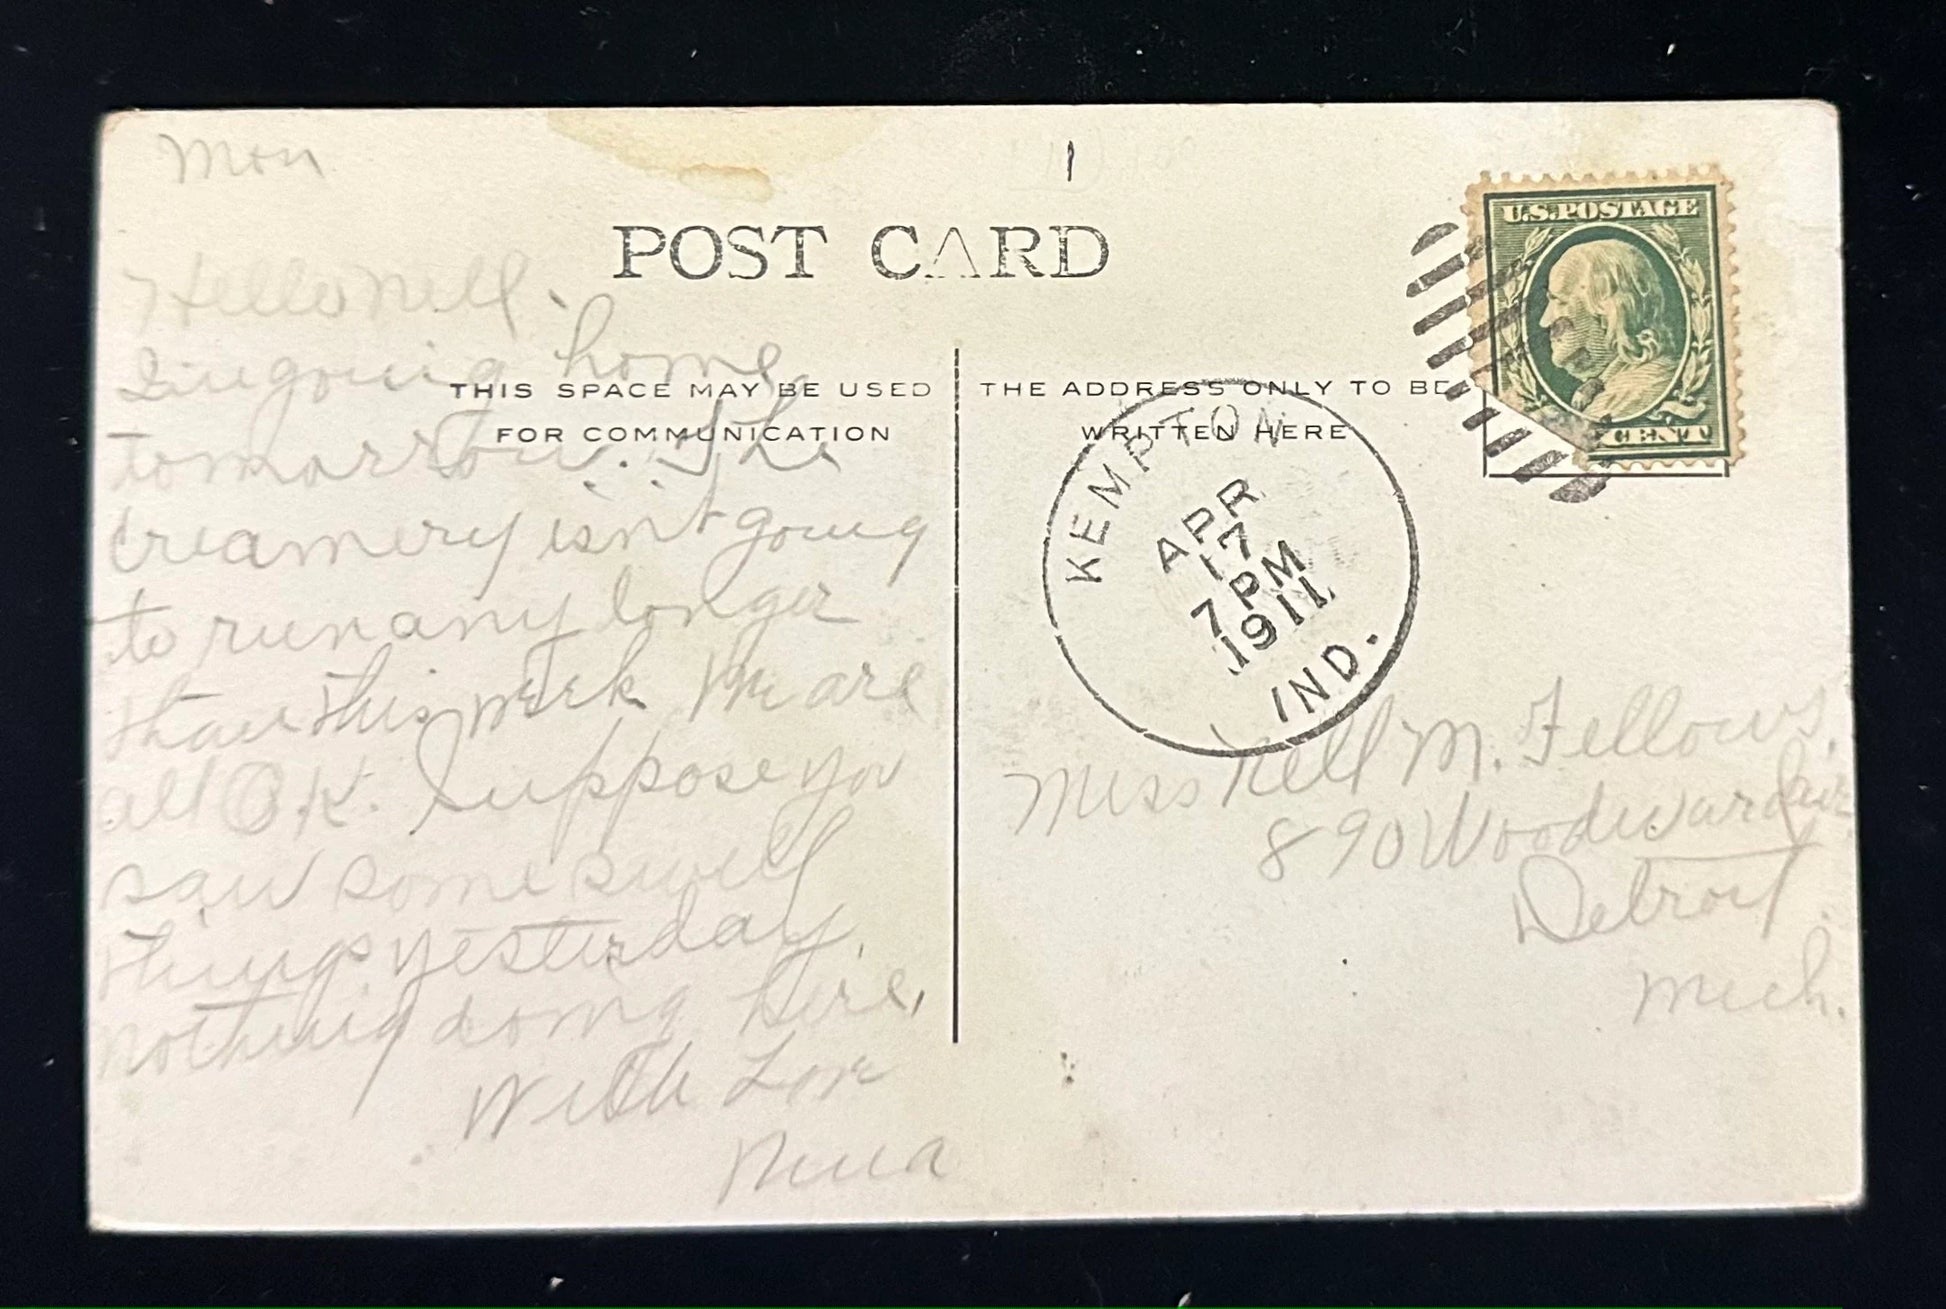 Mon
POST CARD
U.S. POSTAGE
CENT
THIS SPACE MAY BE USED
FOR COMMUNICATION
THE ADDRESS ONLY TO BE
WRITTEN HERE
KEMPTON
APR
17
7 PM
1911
IND.
Hello Nell.
I'm going home
tomorrow. The
creamery isn't going
to run any longer
than this week We are
all O.K. Suppose you
saw some swell
things yesterday,
nothing doing here,
With Love
Nina
Miss Nell M. Fellows,
890 Woodward Ave
Detroit
Mich.